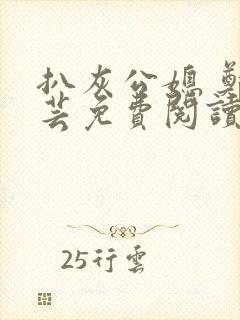 扒灰公媳 鄭
芸免費閱讀
25行雲